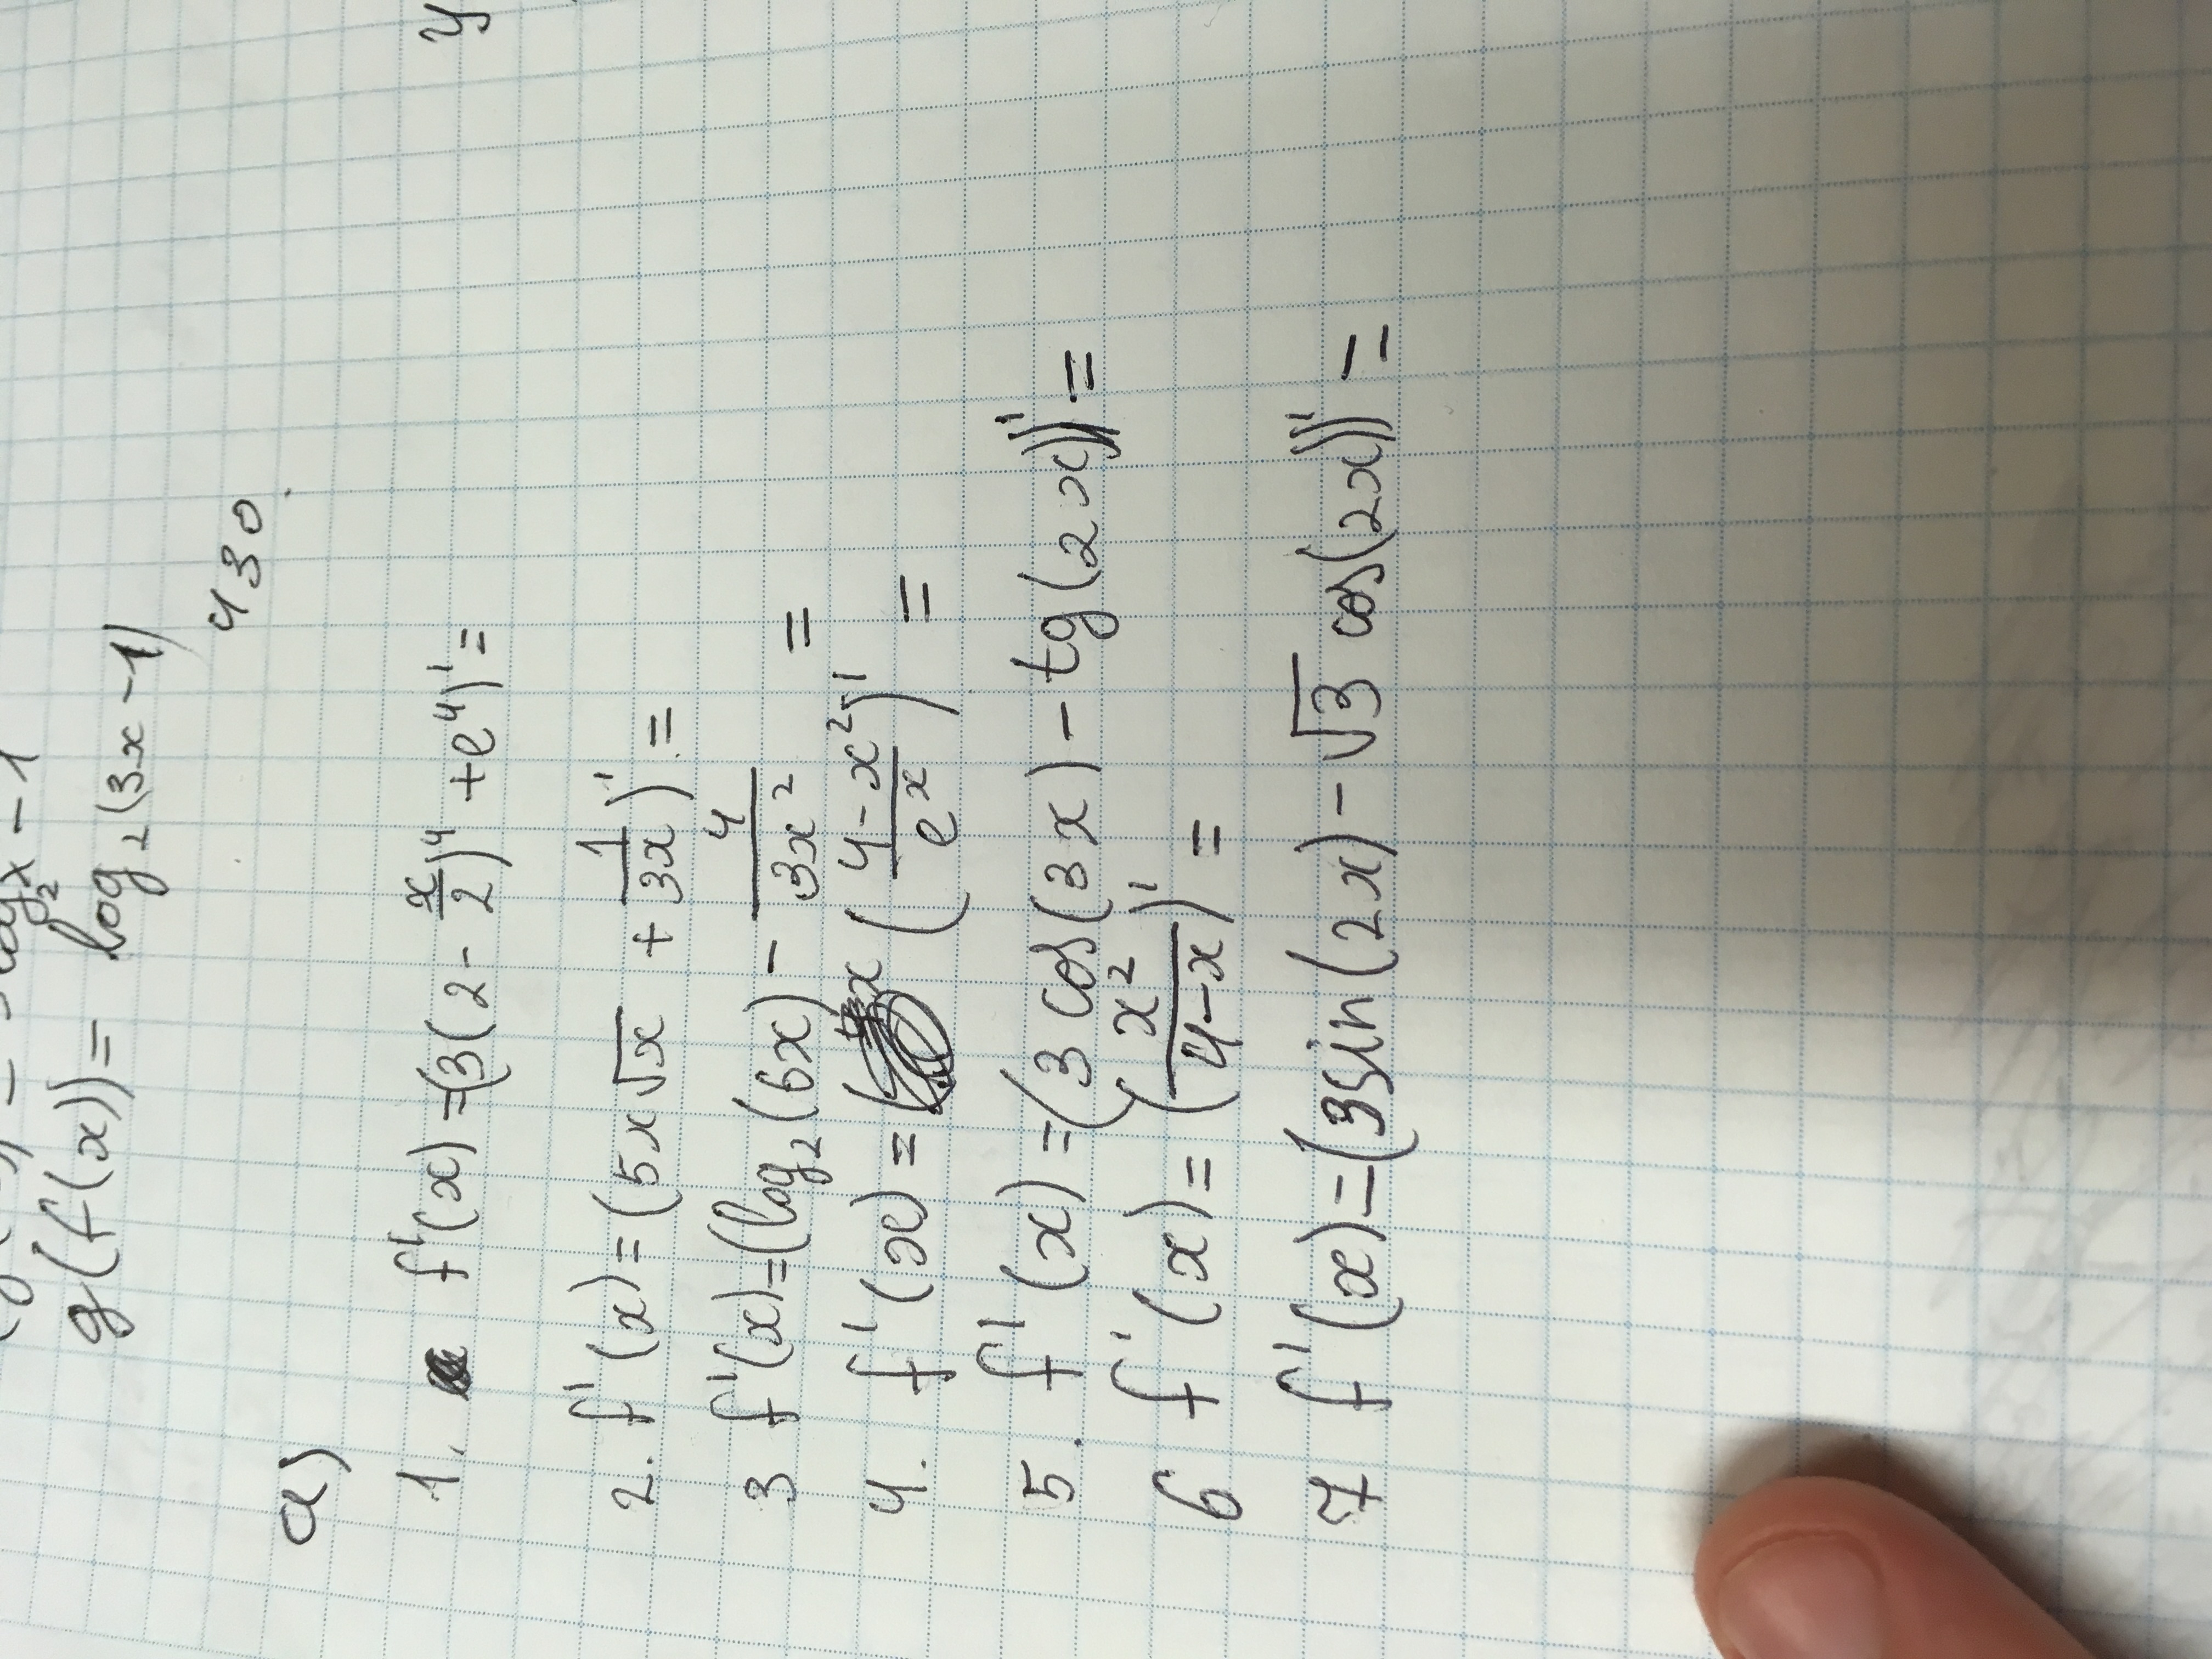 g(f(x)) = log₂(3x-1)
430
a)
1. f'(x) =(3(2 - x/2)⁴ + e⁴)' =
2. f'(x) = (5x√x + 1/3x)' =
3 f'(x)=(log₂(6x) - 4/3x² =
4. f'(x) = ( (4-x²/eˣ)' =
5. f'(x) =(3 cos(3x) - tg(2x))' =
6 f'(x) = (x²/4-x)' =
7 f'(x)=(3sin(2x) - √3 cos(2x))' =